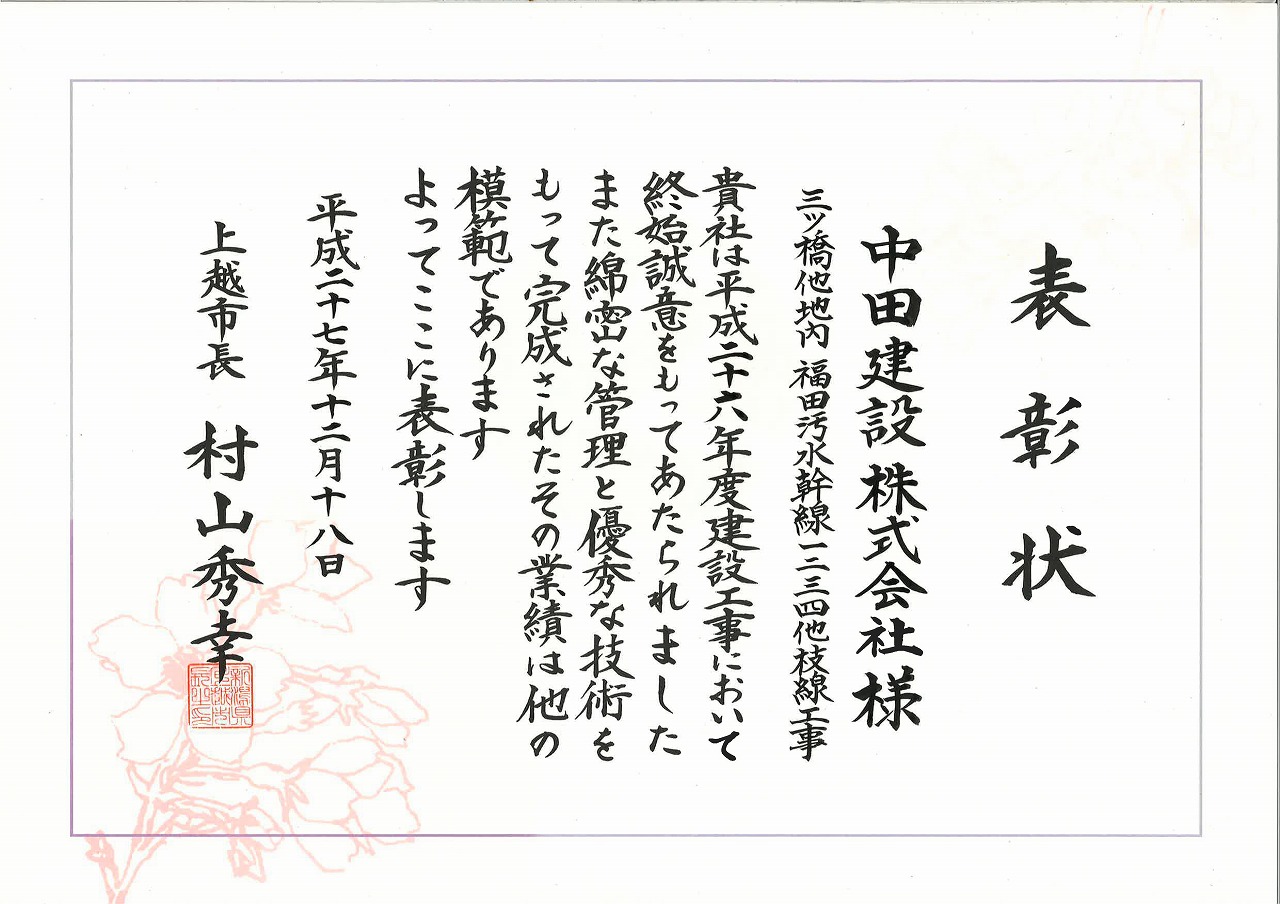 表彰状
中田建設株式会社様
三ッ橋他地内 福田汚水幹線一二三四他枝線工事
貴社は平成二十六年度建設工事において
終始誠意をもってあたられました
また綿密な管理と優秀な技術を
もって完成されたその業績は他の
模範であります
よってここに表彰します
平成二十七年十二月十八日
上越市長 村山秀幸